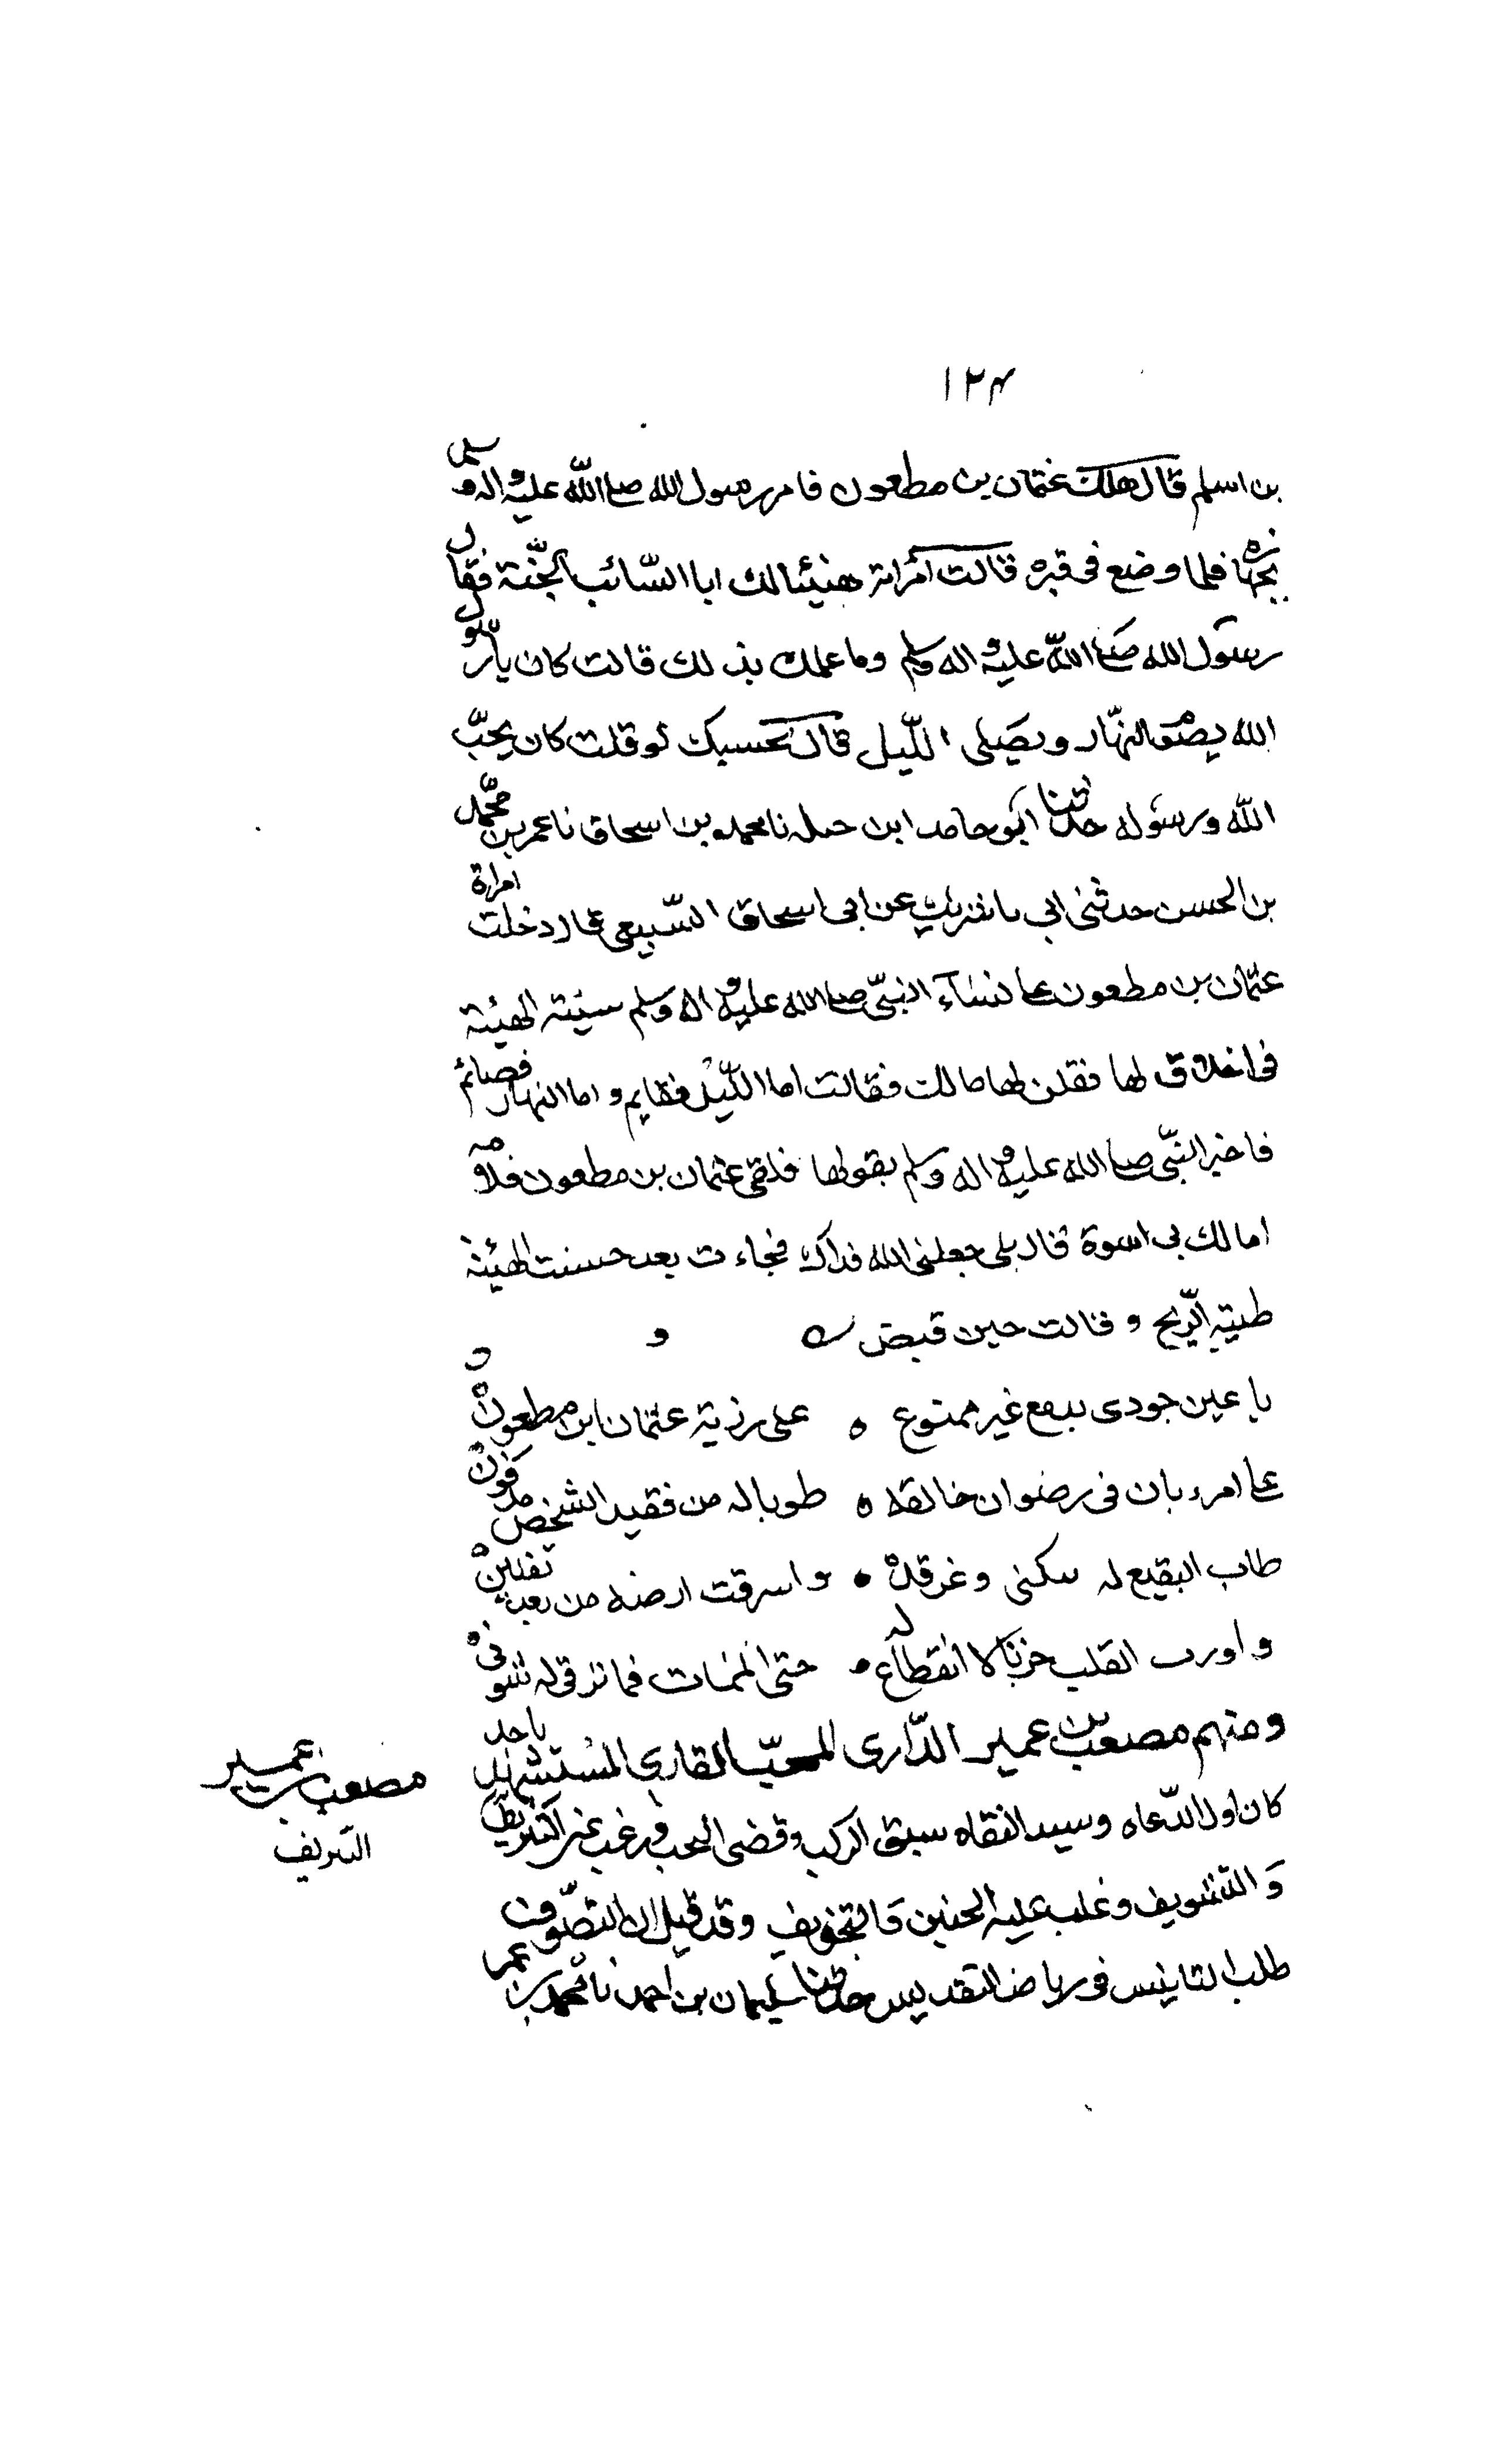 ١٢٤
بن اسلم قال هلك عثمان بن مطعون فامر رسول الله صلى الله عليه واله وسلم
بجهازه فلما وضع فى قبره قالت امراته هنيئا لك ابا السّائب الجنّة فقال
رسول الله صلى الله عليه واله وسلم وما علمك بذلك قالت كان يا رسول
الله يصوم النهّار ويصلى اللّيل قال بحسبك لو قلت كان يحبّ
الله ورسوله حدثنا ابو حامد ابن جبله نا محمد بن اسحاق نا عمر بن محمّد
بن الحسن حدثنى ابى نا شريك عن ابى اسحاق السّبيعى قال دخلت امراة
عثمان بن مطعون على نسآء النبىّ صلى الله عليه واله وسلم سيئة الهيئة
فى اخلاق لها فقلن لها مالك فقالت اما اللّيل فقايم واما النهار فصائم
فاخبر النبّى صلى الله عليه واله وسلم بقولها فلقى عثمان بن مطعون فلامه
امالك بى اسوة قال بلى جعلنى الله فداك فجاءت بعد حسنت الهيئة
طيبة الرّيح وقالت حين قبض
يا عين جودى بدمع غير ممنوع ٥ على رزية عثمان ابن مطعون
على امرء بان فى رضوان خالقه ٥ طوبا له من فقيد الشخص مدفون
طاب البقيع له سكنى وغرقده ٥ واشرقت ارضه من بعد تفتين
واورث القلب حزنا لا انقطاع له ٥ حتى الممات فما ترقى له شونى
ومنهم مصعب بن عمير الدّارى المحبّ القارى المستشهد باحد
كان اول الدّعاه وسيد التقاه سبق الركب وقضى النحب ورغب عن التتريف
والتسويف وغلب عليه الحنين والتخويف وقد قيل ان التصّوف
طلب التانيس فى رياض التقديس حدثنا سليمان بن احمد نا محمد بن عمر
مصعب بن عمير
الشريف